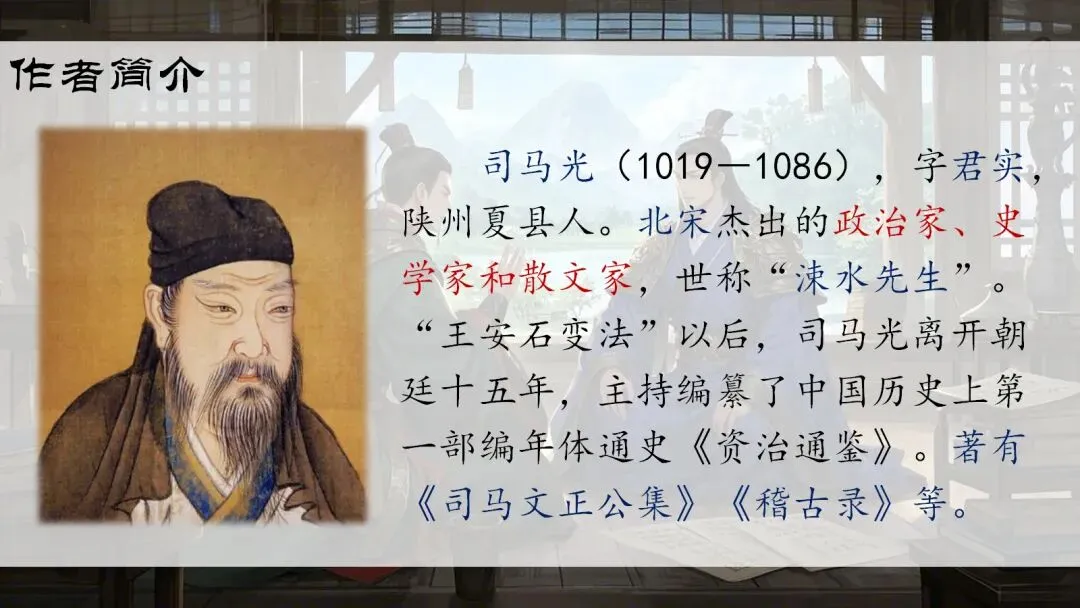 作者简介
司马光（1019－1086），字君实，
陕州夏县人。北宋杰出的政治家、史
学家和散文家，世称“涑水先生”。
“王安石变法”以后，司马光离开朝
廷十五年，主持编纂了中国历史上第
一部编年体通史《资治通鉴》。著有
《司马文正公集》《稽古录》等。